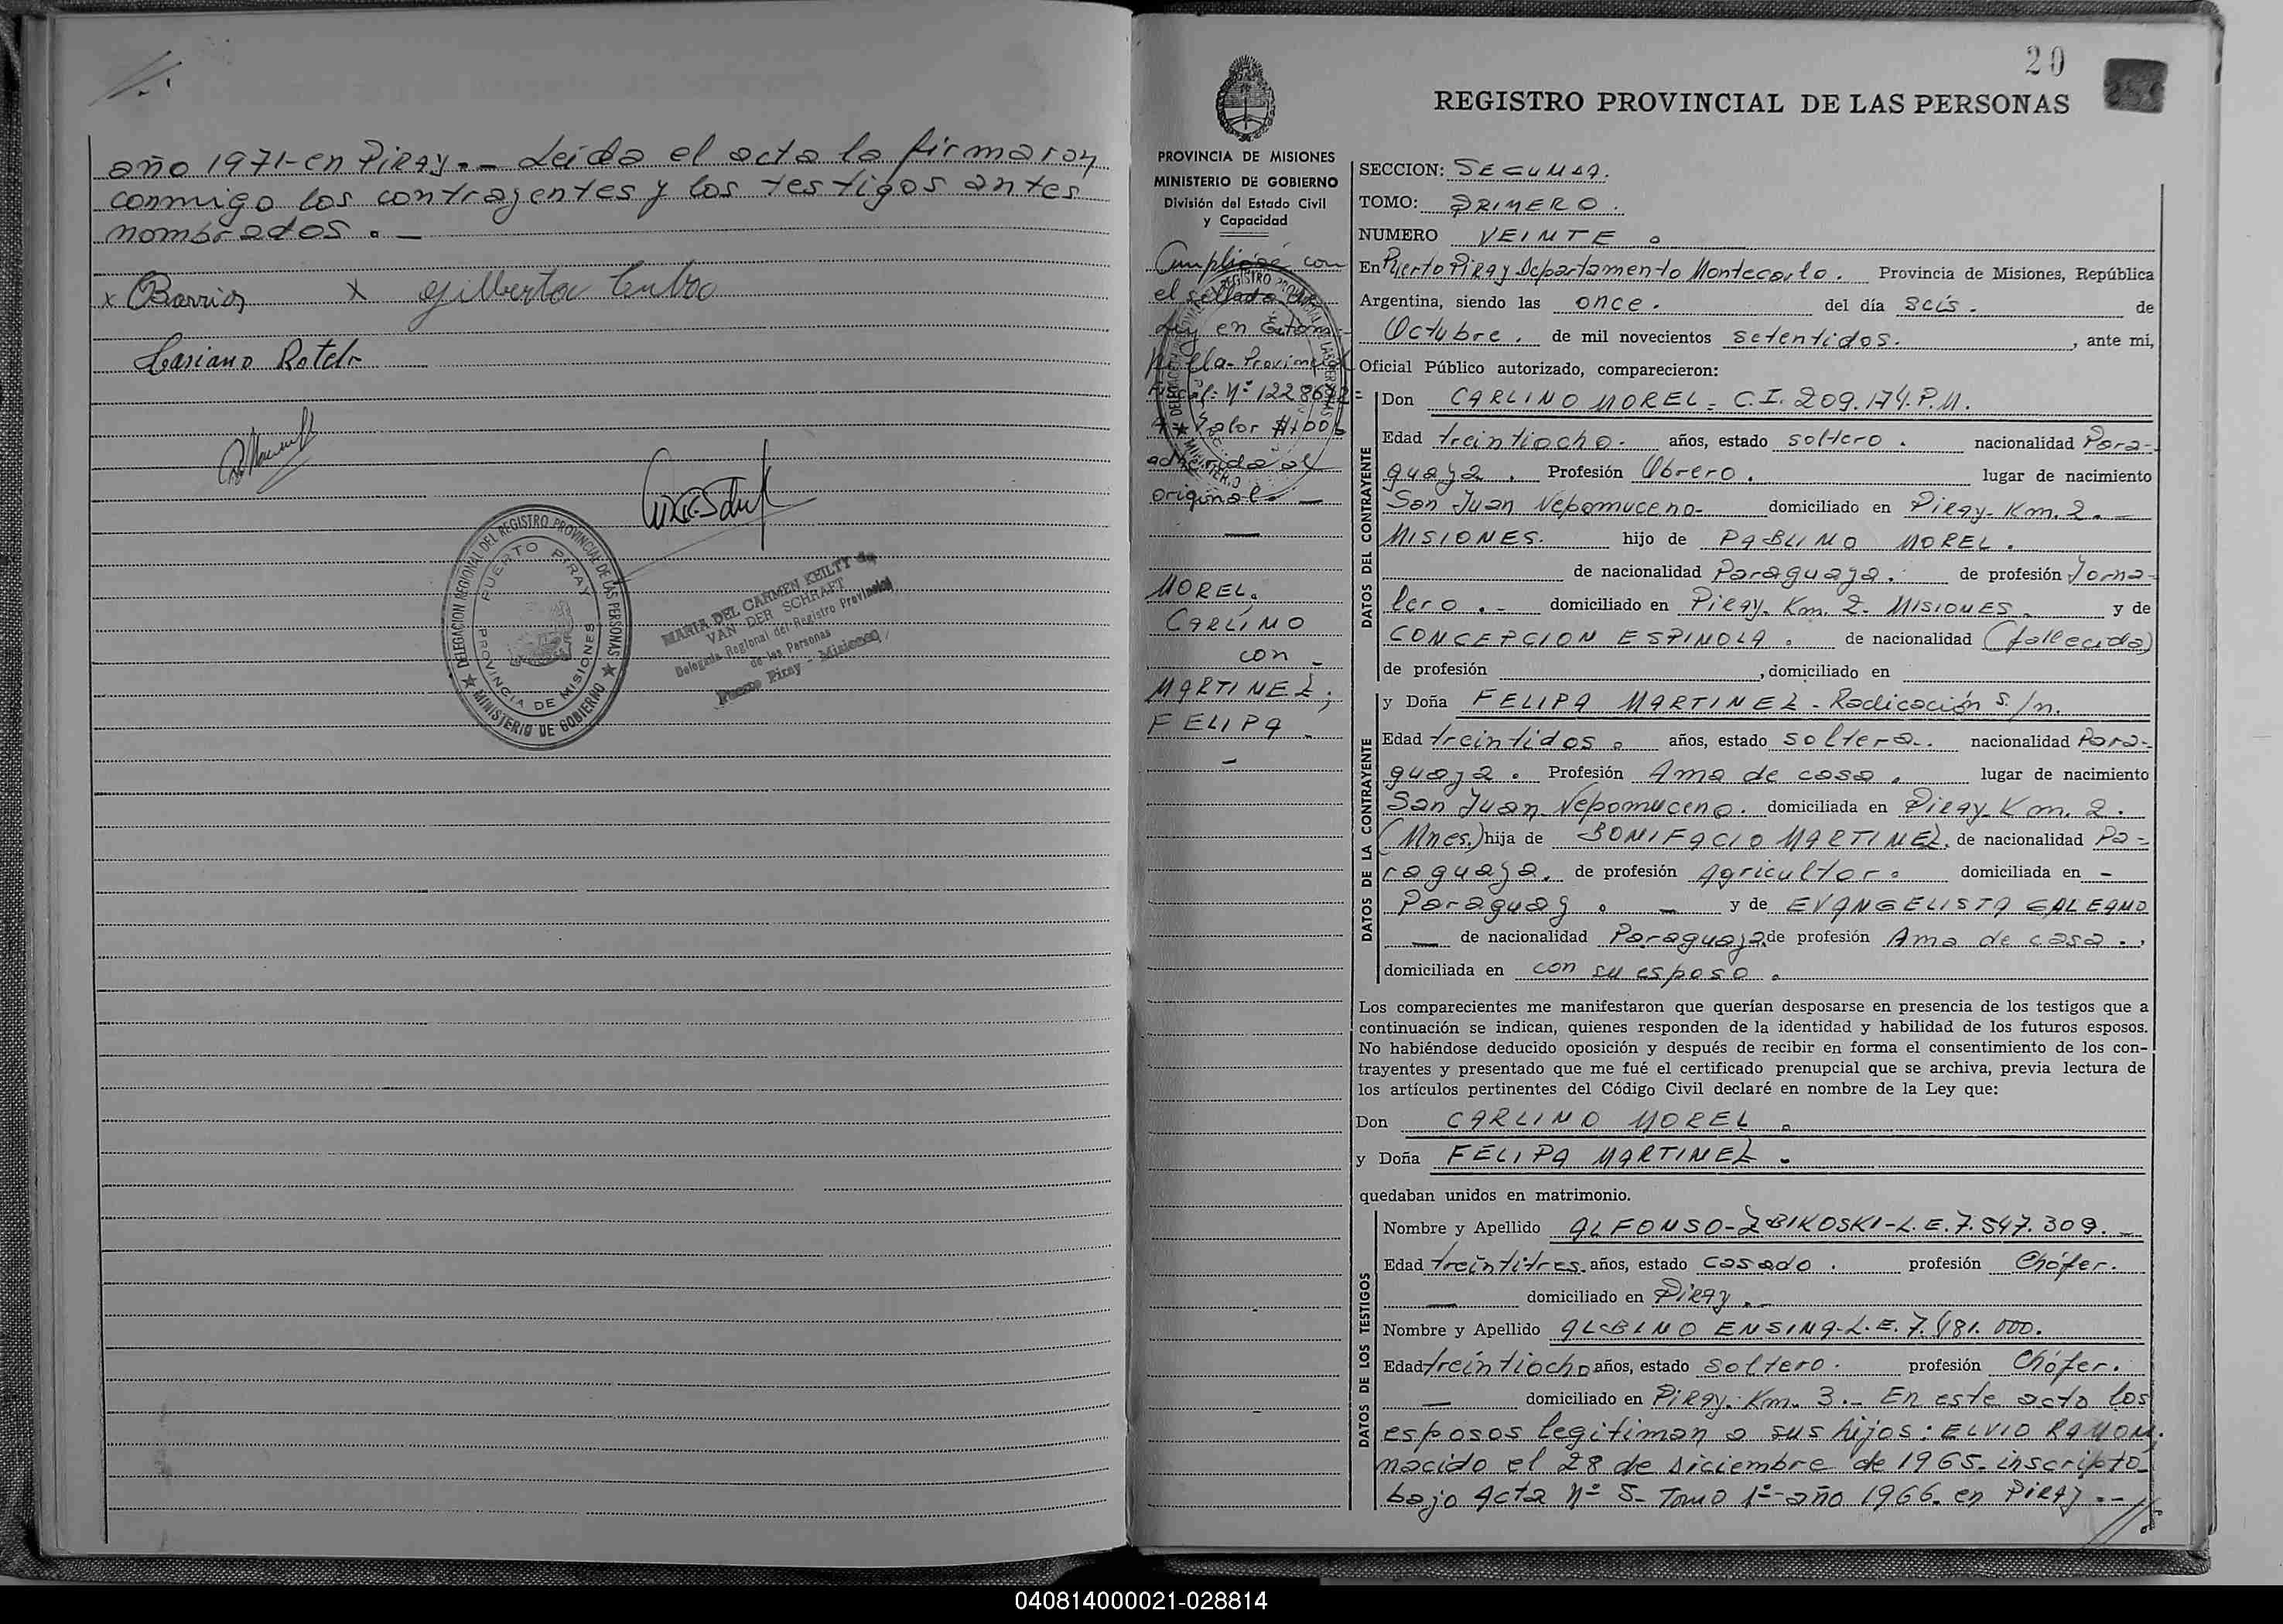 año 1971- en PIRAY.- Leída el acta la firmaron
conmigo los contrayentes y los testigos antes
nombrados. -
x Barrios x Gilberta
Casiano Rotela
DELEGACION REGIONAL DEL REGISTRO PROVINCIAL DE LAS PERSONAS
PUERTO PIRAY
PROVINCIA DE MISIONES
★ MINISTERIO DE GOBIERNO ★
MARIA DEL CARMEN KEILTY de
VAN DER SCHRAFT
Delegada Regional del Registro Provincial
de las Personas
Puerto Piray - Misiones
20
REGISTRO PROVINCIAL DE LAS PERSONAS
PROVINCIA DE MISIONES
MINISTERIO DE GOBIERNO
División del Estado Civil
y Capacidad
Cumpliose con
el sellado de
Ley en Estam-
pilla Provincial
Fiscal: Nº 122869
Valor $
adherida al
original. -
MOREL,
CARLINO
con -
MARTINEZ,
FELIPA -
SECCION: SEGUNDA.
TOMO: PRIMERO.
NUMERO VEINTE.
En Puerto Piray Departamento Montecarlo. Provincia de Misiones, República
Argentina, siendo las once. del día seis. de
Octubre. de mil novecientos setentidos. , ante mi,
Oficial Público autorizado, comparecieron:
DATOS DEL CONTRAYENTE
Don CARLINO MOREL - C.I. 209.174. P.M.
Edad treintiocho. años, estado soltero. nacionalidad Para-
guaya. Profesión Obrero. lugar de nacimiento
San Juan Nepomuceno- domiciliado en PIRAY- Km. 2. -
MISIONES. hijo de PABLINO MOREL.
de nacionalidad Paraguaya. de profesión Jorna-
lero. - domiciliado en PIRAY. Km. 2- MISIONES. y de
CONCEPCION ESPINOLA. de nacionalidad (fallecida)
de profesión , domiciliado en
DATOS DE LA CONTRAYENTE
y Doña FELIPA MARTINEZ - Radicación s./n.
Edad treintidos. años, estado soltera. nacionalidad Para-
guaya. Profesión Ama de casa. lugar de nacimiento
San Juan Nepomuceno. domiciliada en PIRAY Km. 2.
(Mnes.) hija de BONIFACIO MARTINEZ. de nacionalidad Pa-
raguaya. de profesión Agricultor. domiciliada en -
Paraguay. - y de EVANGELISTA GALEANO
- de nacionalidad Paraguaya de profesión Ama de casa.
domiciliada en con su esposo.
Los comparecientes me manifestaron que querían desposarse en presencia de los testigos que a
continuación se indican, quienes responden de la identidad y habilidad de los futuros esposos.
No habiéndose deducido oposición y después de recibir en forma el consentimiento de los con-
trayentes y presentado que me fué el certificado prenupcial que se archiva, previa lectura de
los artículos pertinentes del Código Civil declaré en nombre de la Ley que:
Don CARLINO MOREL.
y Doña FELIPA MARTINEZ.
quedaban unidos en matrimonio.
DATOS DE LOS TESTIGOS
Nombre y Apellido ALFONSO-ZBIKOSKI-L.E. 7.547.309. -
Edad treintitres. años, estado casado. profesión Chófer.
- domiciliado en PIRAY. -
Nombre y Apellido ALBINO ENSINA-L.E. 7.481.000.
Edad treintiocho años, estado soltero. profesión Chófer.
- domiciliado en PIRAY. Km. 3. - En este acto los
esposos legitiman a sus hijos: ELVIO RAMON,
nacido el 28 de Diciembre de 1965- inscripto-
bajo Acta Nº 5- Tomo 1º año 1966. en PIRAY. - //
040814000021-028814